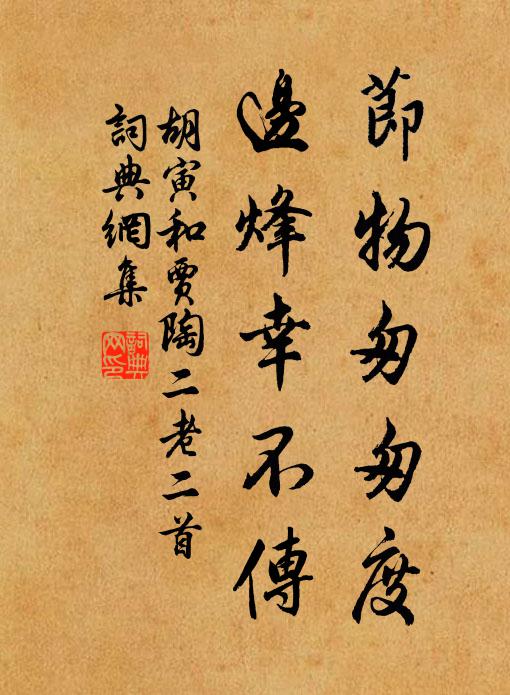 節物匆匆度
邊烽幸不傳
胡寅和賈陶二老二首
詞典網集
詞典網印